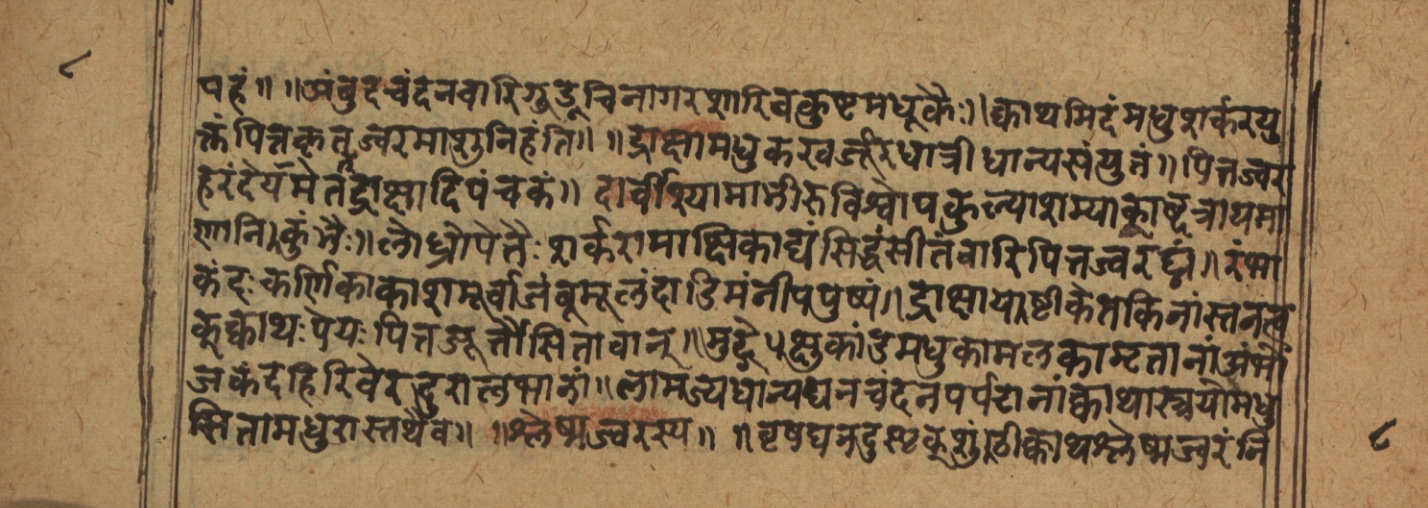 ८
पहं॥ ॥अंबुदचंदनवारिगुडूचिनागरशारिवकुष्टमधूकैः।।क्वाथमिदंमधुशर्करयु
क्तंपित्तकृतज्वरमाशुनिहंति॥ ॥द्राक्षामधुकखर्जूरधात्रीधान्यसंयुतं॥पित्तज्वर
हरंदेयमेतद्द्राक्षादिपंचकं॥ दार्वीश्यामाभीरुविश्वोपकुल्याशम्याकाष्टत्रायमा
णानि।कुंभैः॥लोध्रोपेतैःशर्करामाक्षिकाद्यंसिद्धंसीतंवारिपित्तज्वरघ्नं॥रंभा
कंदःकर्णिकाकाशमूर्वाजंबूमूलंदाडिमंनीपपुष्पं॥द्राक्षायाष्टीकेतकिनांस्तनूत्व
कूक्वाथःपेयःपित्तजूर्त्तौसितावान्॥मुद्गेपक्षुकांडमधुकामलकाम्टतानांअंभो
जकंदहिरिवेरदुरालभानां॥लामज्यधान्यघनचंदनपर्पटानांक्वाथास्त्रयोमधु
सितामधुरास्तथैव॥ ॥श्लेष्मज्वरस्य॥ ॥वृषघनदुस्टकूशुंठीक्वाथश्लेष्मज्वरंनि
८